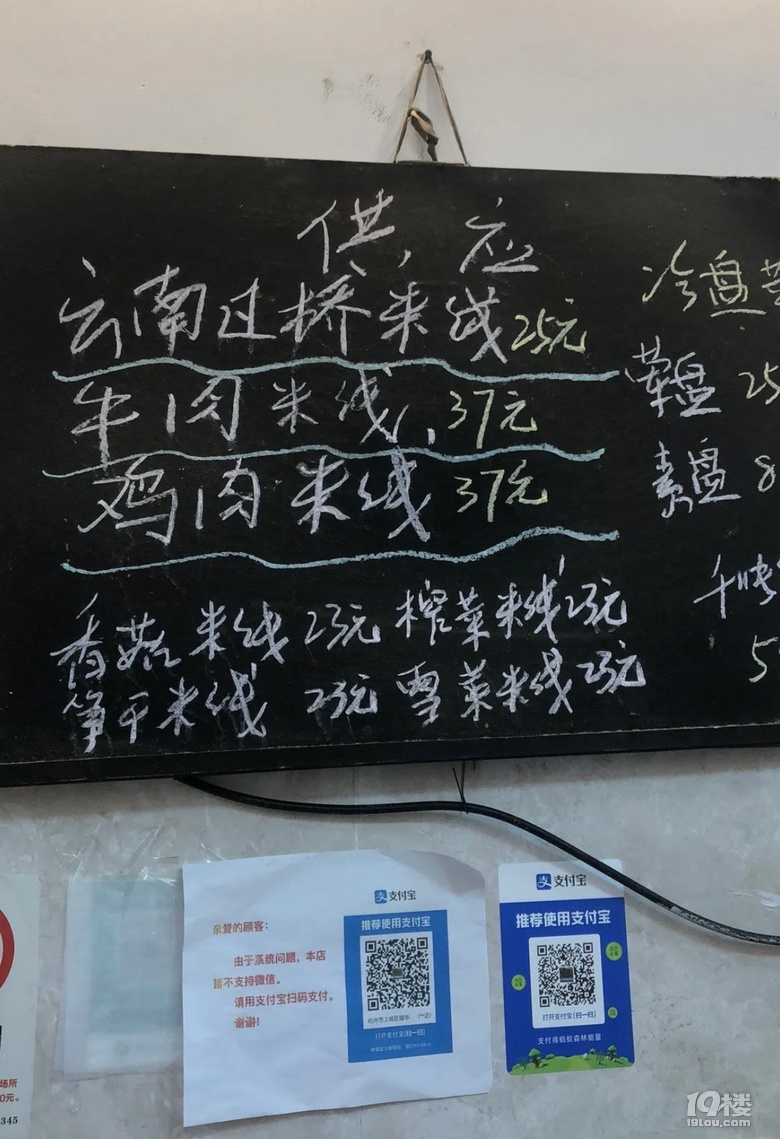 供应
云南过桥米线25元
牛肉米线 37元
鸡肉米线 37元
香菇米线 23元 榨菜米线 23元
笋干米线 23元 雪菜米线 23元
冷盘
荤盘 25
素盘 8
5
亲爱的顾客：
由于系统问题，本店
不支持微信。
请用支付宝扫码支付。
谢谢！
支付宝
推荐使用支付宝
打开支付宝[扫一扫]
支付宝
推荐使用支付宝
打开支付宝[扫一扫]
支付得蚂蚁森林能量
场所
0元。
345
19楼
19lou.com